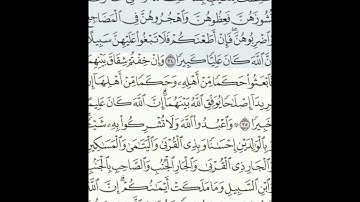 نُشُوزَهُنَّ فَعِظُوهُنَّ وَٱهۡجُرُوهُنَّ فِي ٱلۡمَضَاجِعِ
ٱضۡرِبُوهُنَّۖ فَإِنۡ أَطَعۡنَكُمۡ فَلَا تَبۡغُواْ عَلَيۡهِنَّ سَبِيلًا
نَّ ٱللَّهَ كَانَ عَلِيّٗا كَبِيرٗا ٣٤ وَإِنۡ خِفۡتُمۡ شِقَاقَ بَيۡنِهِ
ٱبۡعَثُواْ حَكَمٗا مِّنۡ أَهۡلِهِۦ وَحَكَمٗا مِّنۡ أَهۡلِهَآ إِن
رِيدَآ إِصۡلَٰحٗا يُوَفِّقِ ٱللَّهُ بَيۡنَهُمَآۗ إِنَّ ٱللَّهَ كَانَ عَلِيمً
خَبِيرٗا ٣٥ وَٱعۡبُدُواْ ٱللَّهَ وَلَا تُشۡرِكُواْ بِهِۦ شَيۡـٔٗ
بِٱلۡوَٰلِدَيۡنِ إِحۡسَٰنٗا وَبِذِي ٱلۡقُرۡبَىٰ وَٱلۡيَتَٰمَىٰ وَٱلۡمَسَٰكِينِ
ٱلۡجَارِ ذِي ٱلۡقُرۡبَىٰ وَٱلۡجَارِ ٱلۡجُنُبِ وَٱلصَّاحِبِ بِٱلۡجَنۢبِ
وَٱبۡنِ ٱلسَّبِيلِ وَمَا مَلَكَتۡ أَيۡمَٰنُكُمۡۗ إِنَّ ٱللَّ